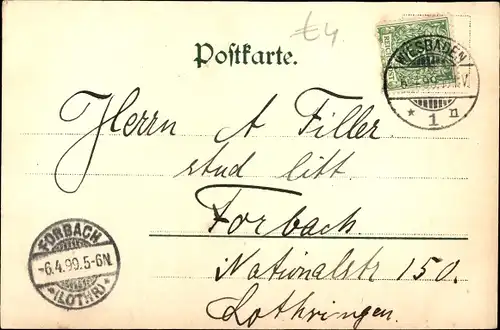 £4
Postkarte.
WIESBADEN
1 n
Herrn A Filler
stud litt.
Forbach
Nationalstr 150.
Lothringen.
FORBACH
-6.4.99.5-6N.
*(LOTHR)*